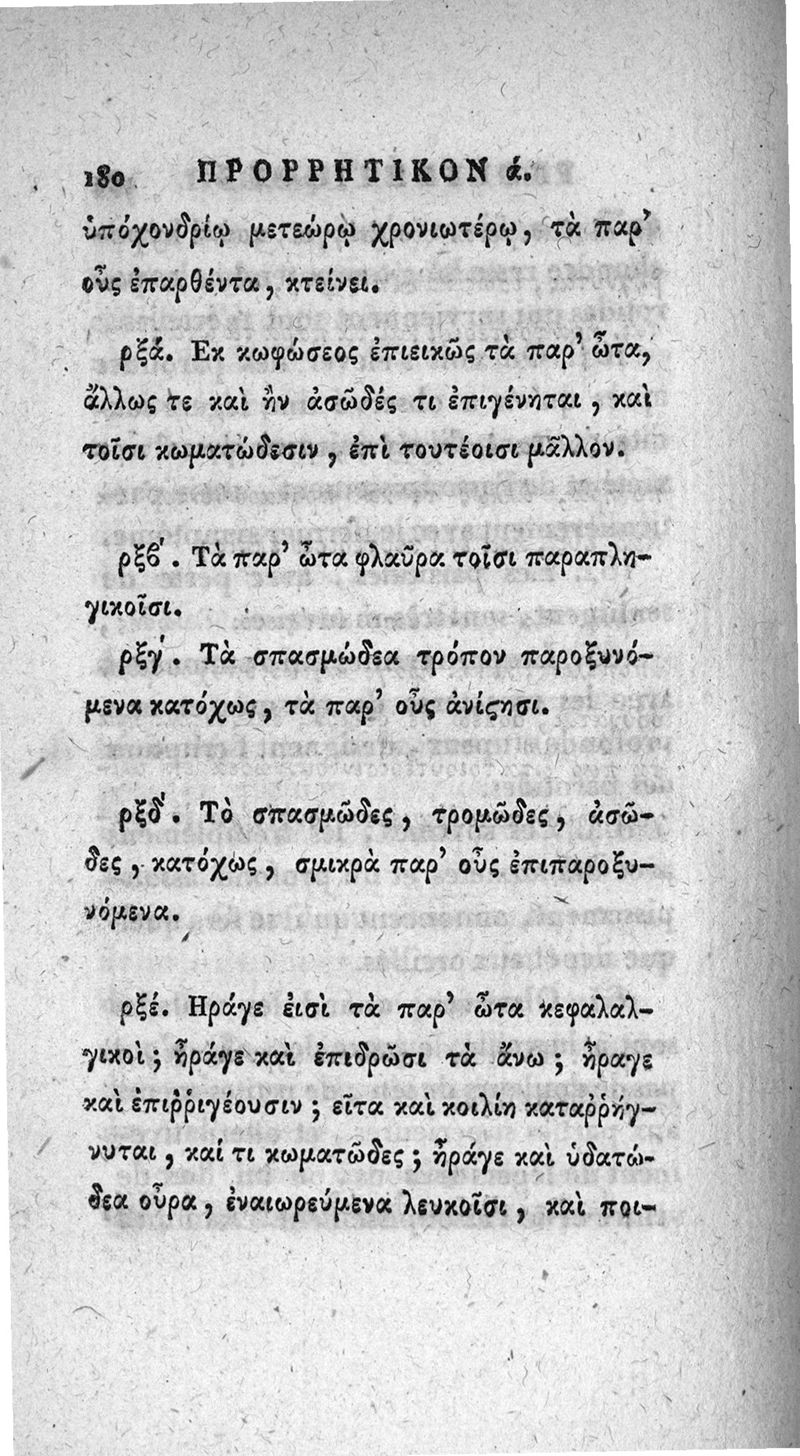 180 ΠΡΟΡΡΗΤΙΚΟΝ ά.
ὑπόχονδρίῳ μετεώρῳ χρονιωτέρῳ, τὰ παρ’
οὖς ἐπαρθέντα, κτείνει.
ρξά. Εκ κωφώσεος ἐπιεικῶς τὰ παρ’ ὦτα,
ἄλλως τε καὶ ἢν ἀσῶδές τι ἐπιγένηται, καὶ
τοῖσι κωματώδεσιν, ἐπὶ τουτέοισι μᾶλλον.
ρξϐ΄. Τὰ παρ’ ὦτα φλαῦρα τοῖσι παραπλη-
γικοῖσι.
ρξγ΄. Τὰ σπασμώδεα τρόπον παροξυνό-
μενα κατόχως, τὰ παρ’ οὖς ἀνίϛησι.
ρξδ΄. Τὸ σπασμῶδες, τρομῶδες, ἀσῶ-
δες, κατόχως, σμικρὰ παρ’ οὖς ἐπιπαροξυ-
νόμενα.
ρξέ. Ηράγε ἐισὶ τὰ παρ’ ὦτα κεφαλαλ-
γικοὶ; ἦράγε καὶ ἐπιδρῶσι τὰ ἄνω; ἦραγε
καὶ ἐπιῤῥιγέουσιν; εἶτα καὶ κοιλίη καταῤῥήγ-
νυται, καί τι κωματῶδες; ἦράγε καὶ ὑδατώ-
δεα οὖρα, ἐναιωρεύμενα λευκοῖσι, καὶ ποι-